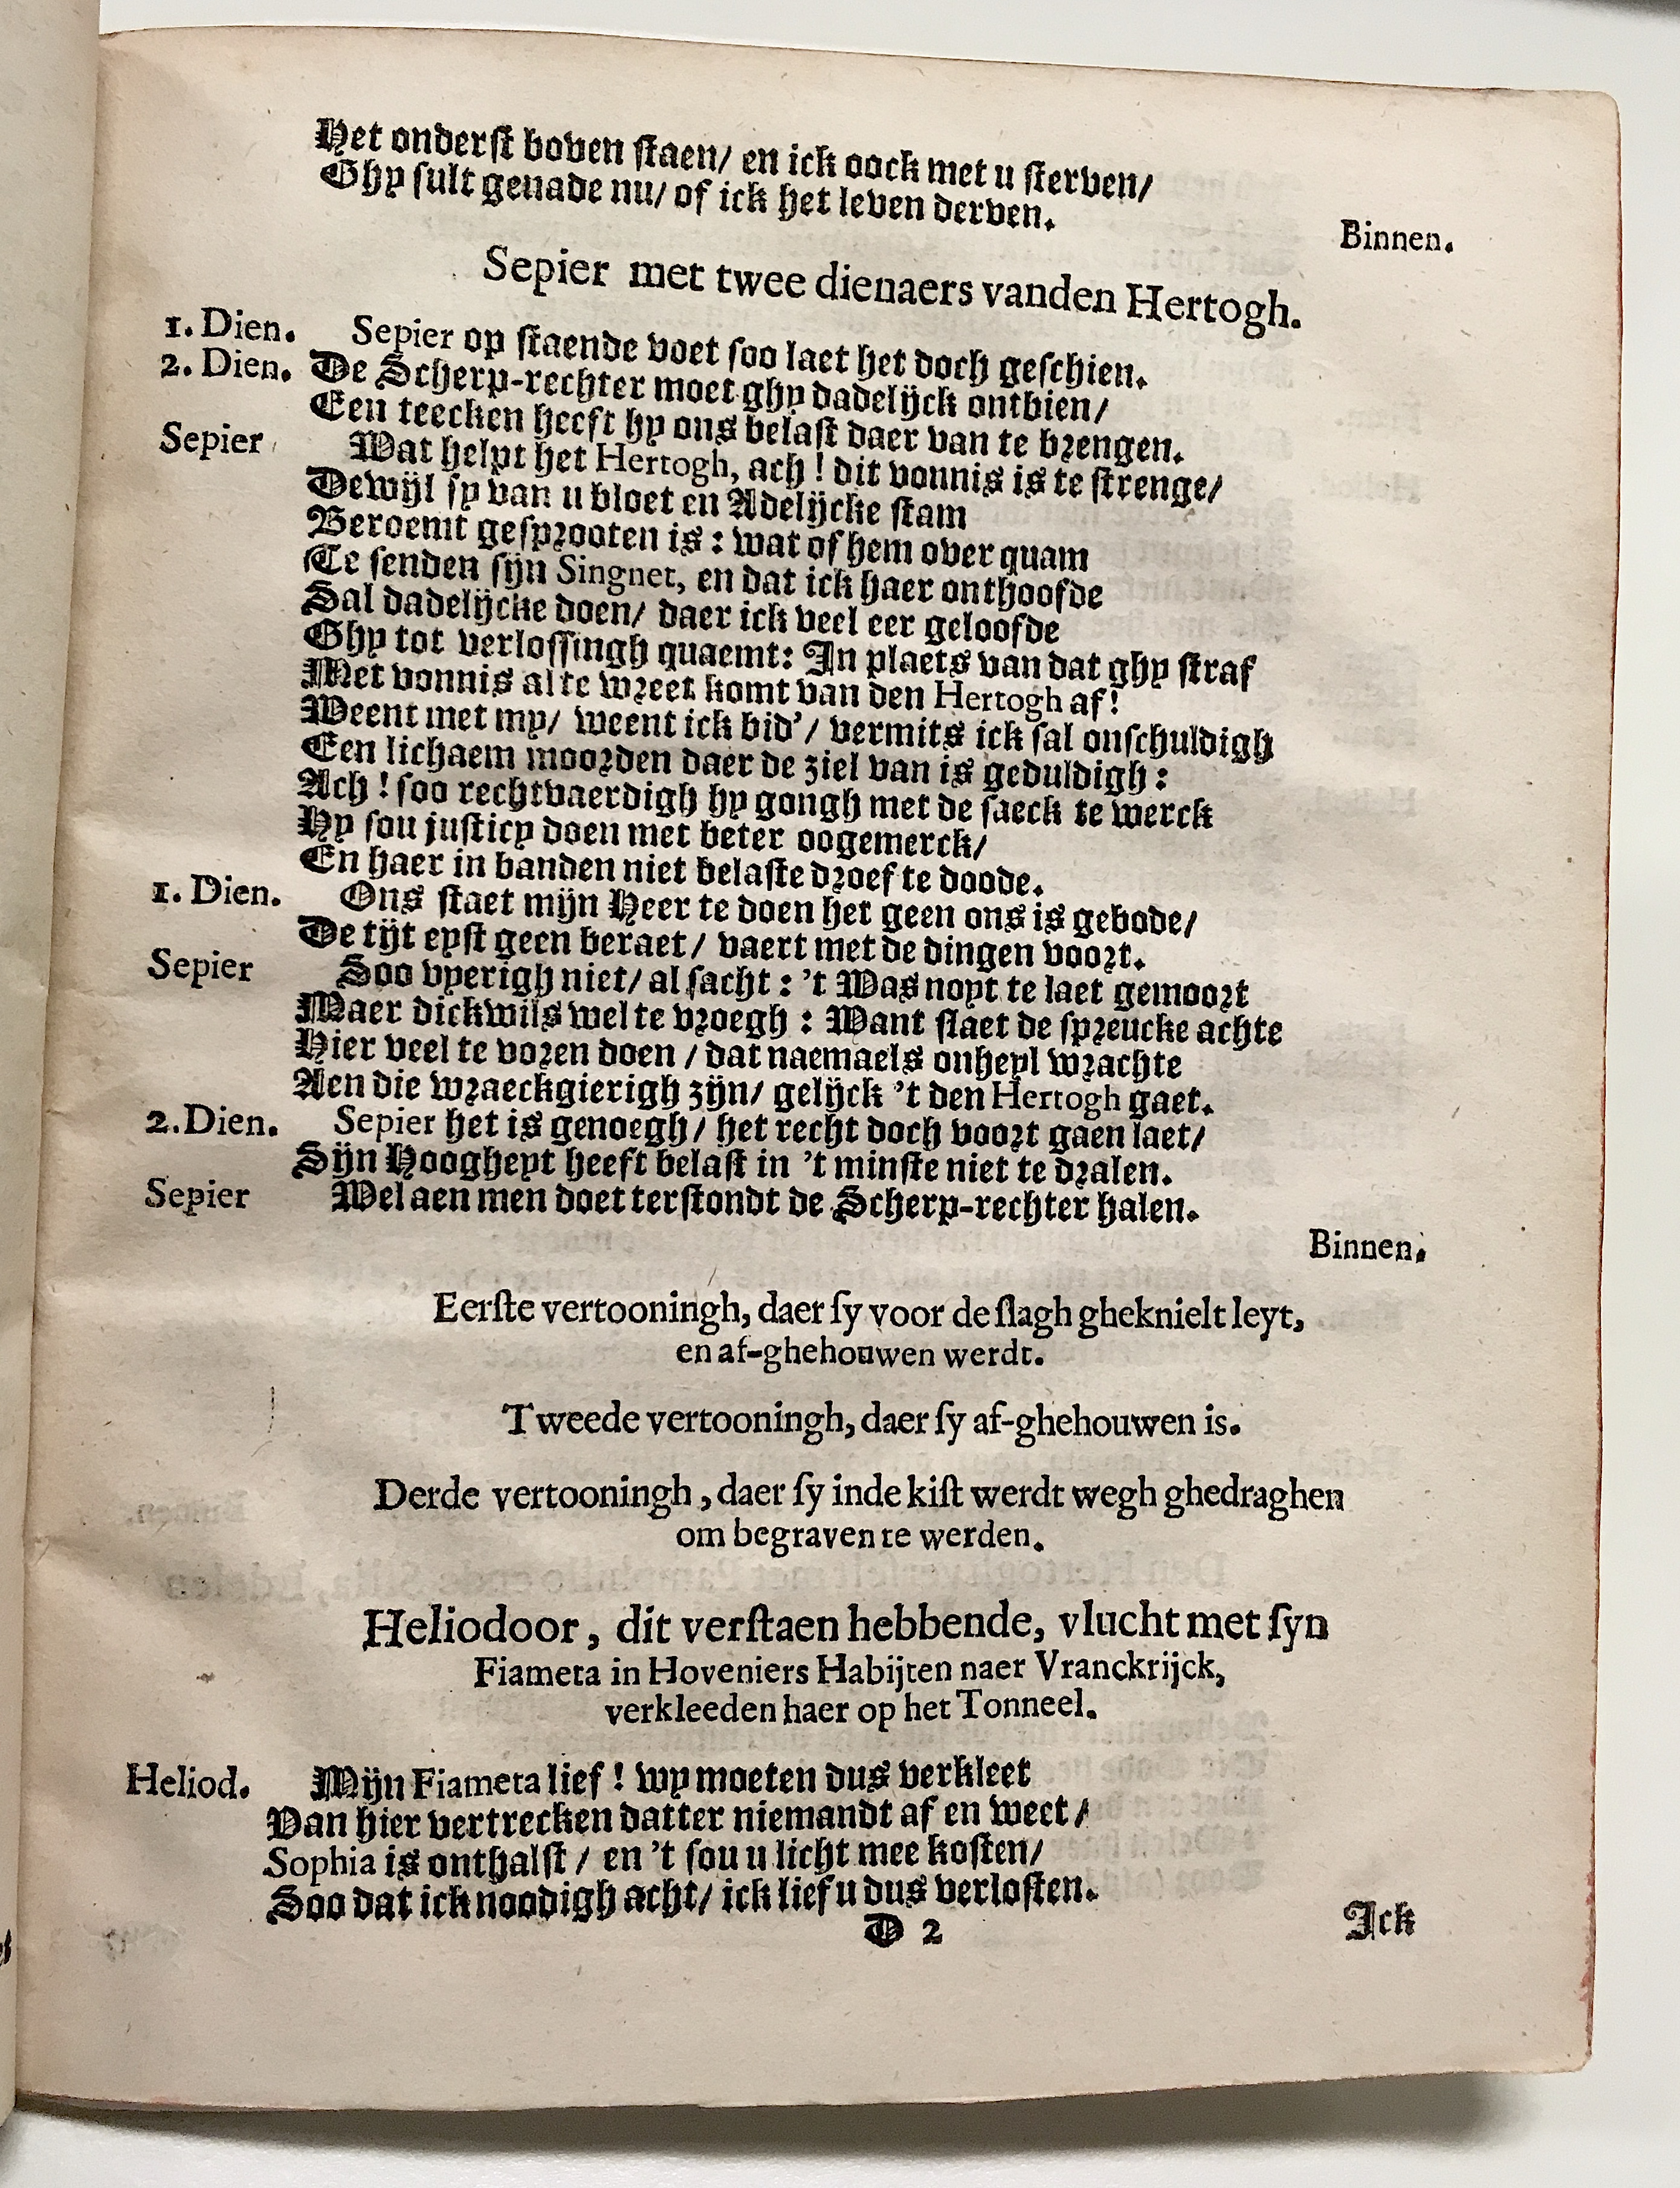 Het onderst boven staen/ en ick oock met u sterven/
Ghy sult genade nu/ of ick het leven derven.
Binnen.
Sepier met twee dienaers vanden Hertogh.
1. Dien. Sepier op staende voet soo laet het doch geschien.
2. Dien. De Scherp-rechter moet ghy dadelijck ontbien/
Een teecken heeft hy ons belast daer van te brengen.
Sepier Wat helpt het Hertogh, ach! dit vonnis is te strenge/
Dewijl sy van u bloet en Adelijcke stam
Beroemt gesprooten is: wat of hem over quam
Te senden sijn Singnet, en dat ick haer onthoofde
Sal dadelijcke doen/ daer ick veel eer geloofde
Ghy tot verlossingh quaemt: In plaets van dat ghy straf
Met vonnis al te wreet komt van den Hertogh af!
Weent met my/ weent ick bid'/ vermits ick sal onschuldigh
Een lichaem moorden daer de ziel van is geduldigh:
Ach! soo rechtvaerdigh hy gongh met de saeck te werck
Hy sou justicy doen met beter oogemerck/
En haer in banden niet belaste droef te doode.
1. Dien. Ons staet mijn Heer te doen het geen ons is gebode/
De tijt eyst geen beraet/ vaert met de dingen voort.
Sepier Soo vyerigh niet/ al sacht: 't Was noyt te laet gemoort
Maer dickwils wel te vroegh: Want staet de spreucke achte
Hier veel te voren doen/ dat naemaels onheyl wrachte
Aen die wraeckgierigh zijn/ gelijck 't den Hertogh gaet.
2. Dien. Sepier het is genoegh/ het recht doch voort gaen laet/
Sijn Hoogheyt heeft belast in 't minste niet te dralen.
Sepier Wel aen men doet terstondt de Scherp-rechter halen.
Binnen.
Eerste vertooningh, daer sy voor de slagh gheknielt leyt,
en af-ghehouwen werdt.
Tweede vertooningh, daer sy af-ghehouwen is.
Derde vertooningh, daer sy inde kist werdt wegh ghedraghen
om begraven te werden.
Heliodoor, dit verstaen hebbende, vlucht met syn
Fiameta in Hoveniers Habijten naer Vranckrijck,
verkleeden haer op het Tonneel.
Heliod. Mijn Fiameta lief! wy moeten dus verkleet
Van hier vertrecken datter niemandt af en weet/
Sophia is onthalst/ en 't sou u licht mee kosten/
Soo dat ick noodigh acht/ ick lief u dus verlosten.
D 2
Ick